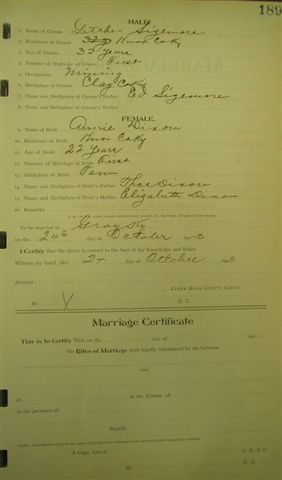 189
MALE.
1. Name of Groom Sizemore
2. Residence of Groom Knox Co Ky
3. Age of Groom 32 Years
4. Number of Marriage of Groom First
5. Occupation Mining
6. Birthplace of Groom Clay Co Ky
7. Name and Birthplace of Groom's Father Ed Sizemore
8. Name and Birthplace of Groom's Mother
FEMALE.
9. Name of Bride Annie Dixon
10. Residence of Bride Knox Co Ky
11. Age of Bride 22 Years
12. Number of Marriage of Bride First
13. Birthplace of Bride Tenn
14. Name and Birthplace of Bride's Father Thos Dixon
15. Name and Birthplace of Bride's Mother Elizabeth Dixon
16. Remarks
To be married at Gray Ky
on the 24th day of October
I Certify that the above is correct to the best of my knowledge and belief.
Witness my hand, this 24 day of October
Attest:
Clerk Knox County Court.
By V D. C.
Marriage Certificate
This is to Certify That on the day of
the Rites of Marriage were legally solemnized by me between
and
at in the County of
in the presence of
Signed,
A Copy Attest: C. K. C. C.
By D. C.